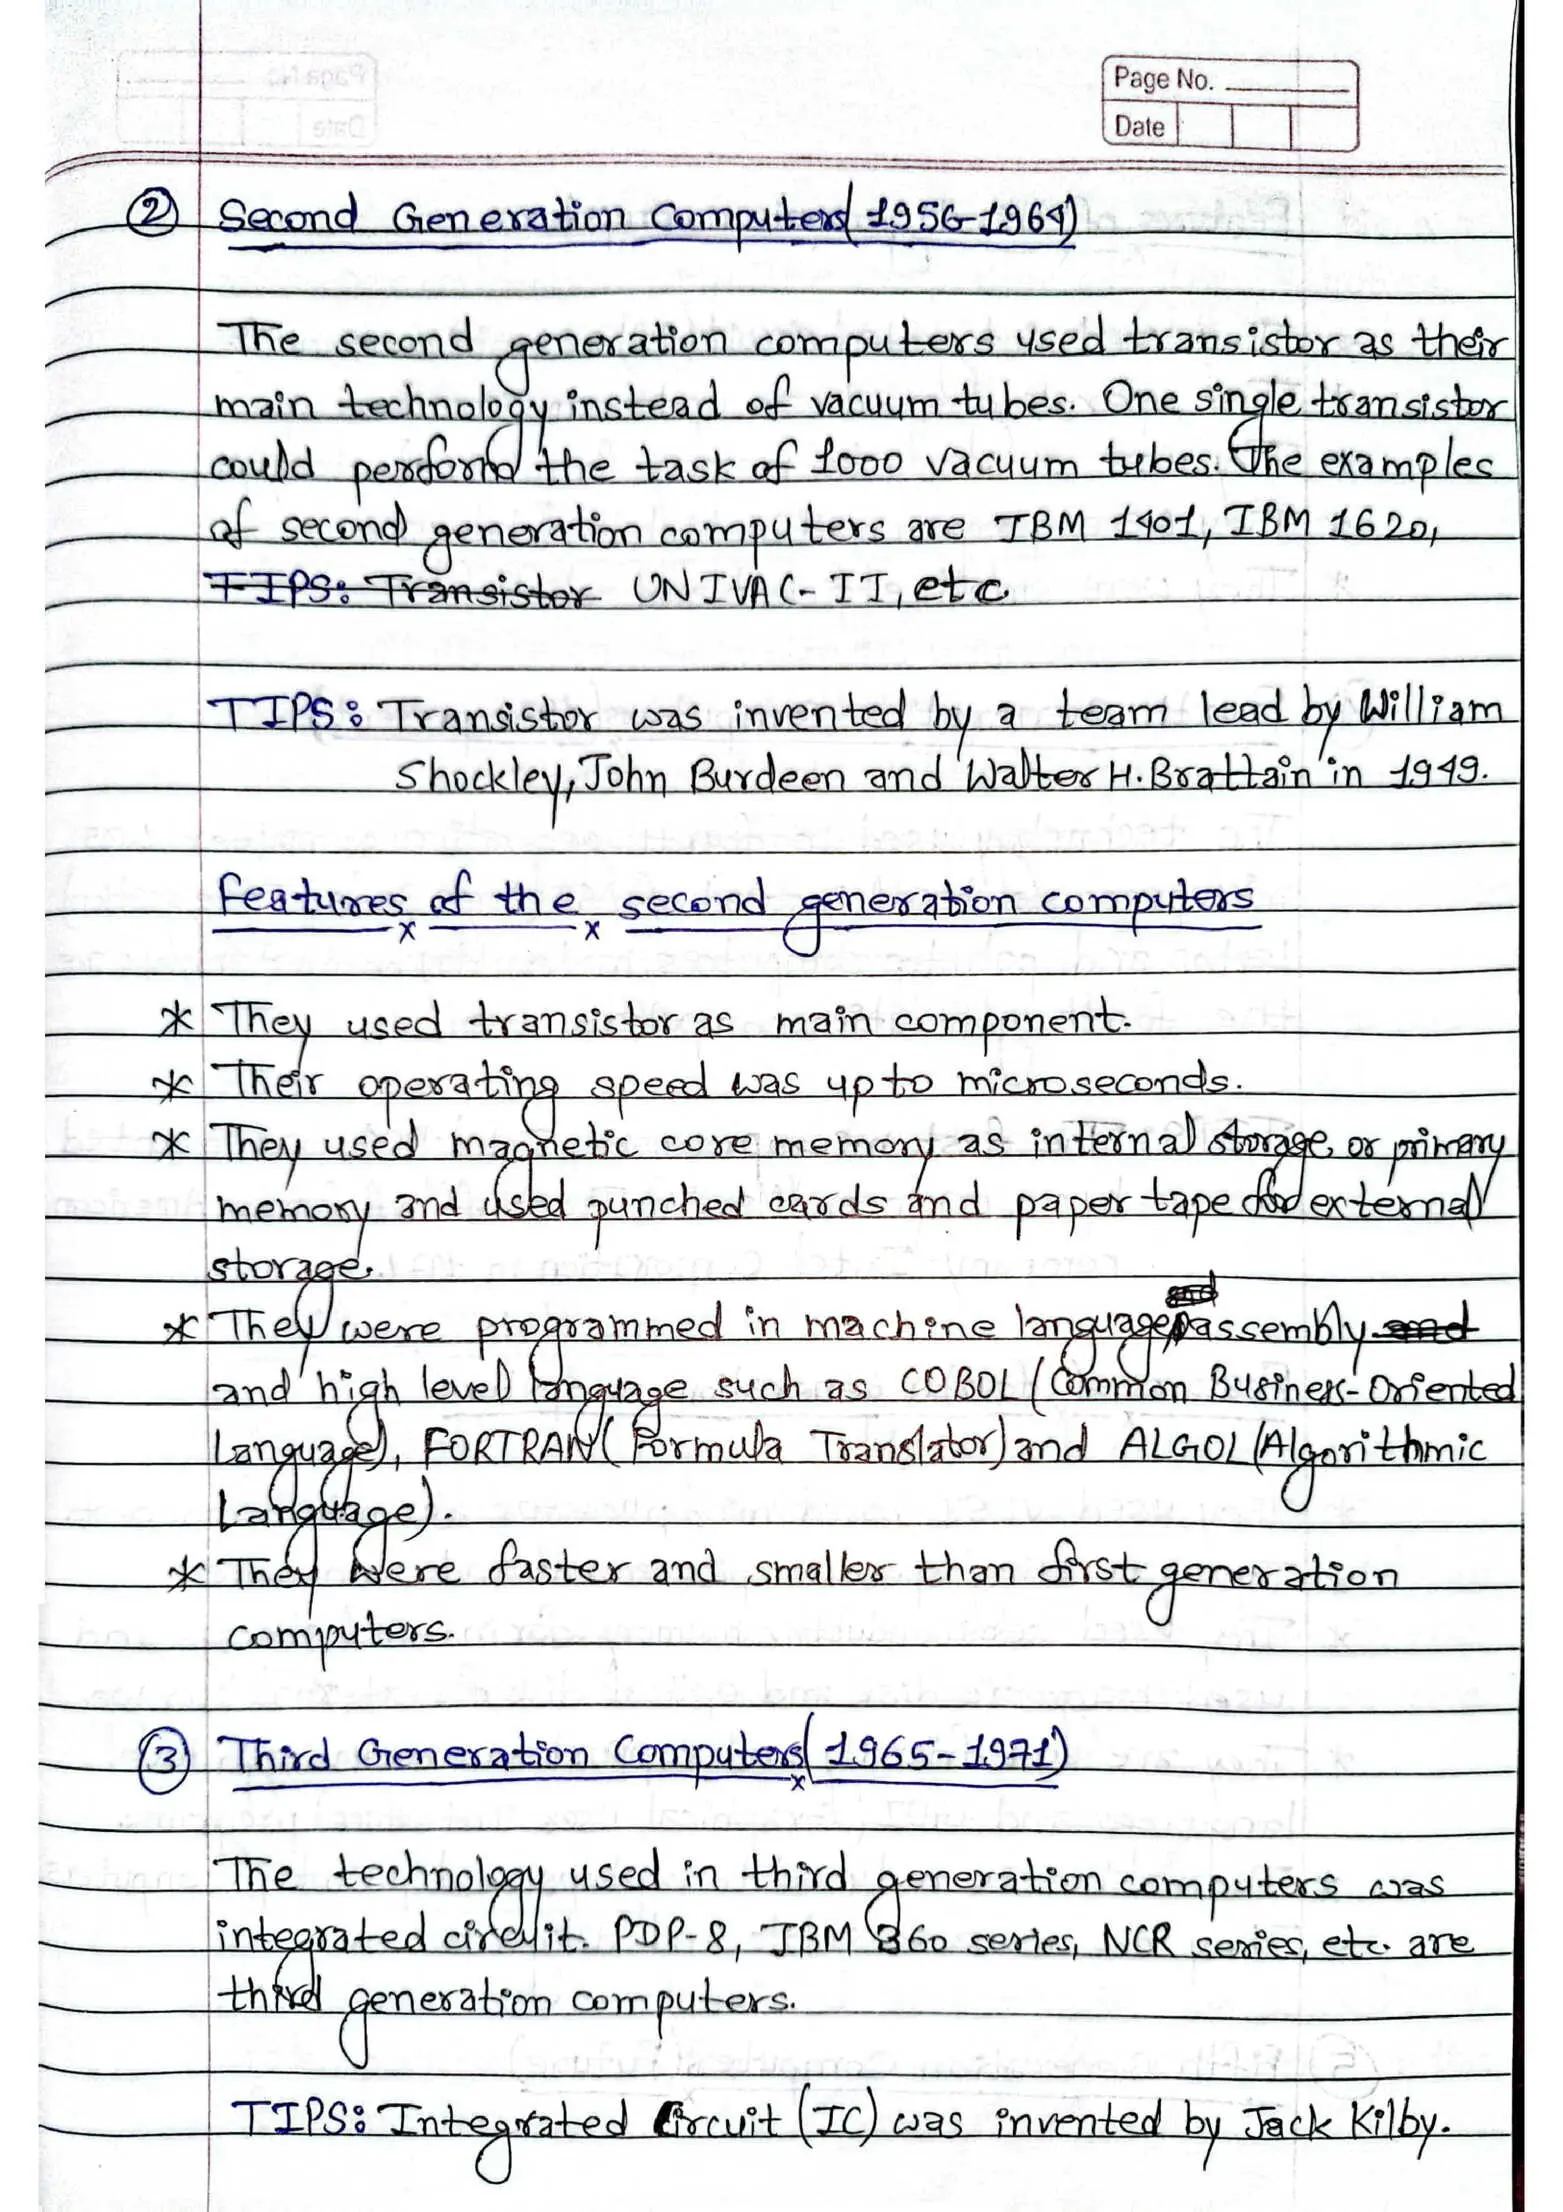 Page No.
Date
② Second Generation Computers(1956-1964)
The second generation computers used transistor as their
main technology instead of vacuum tubes. One single transistor
could perform the task of 1000 vacuum tubes. The examples
of second generation computers are IBM 1401, IBM 1620,
TIPS: Transistor UNIVAC-II, etc
TIPS: Transistor was invented by a team lead by William
Shockley, John Burdeen and Walter H. Brattain in 1949.
Features of the second generation computers
* They used transistor as main component.
* Their operating speed was up to microseconds.
* They used magnetic core memory as internal storage or primary
memory and used punched cards and paper tape for external
storage.
* They were programmed in machine language, assembly and
and high level language such as COBOL (Common Business-Oriented
Language), FORTRAN (Formula Translator) and ALGOL (Algorithmic
Language).
* They were faster and smaller than first generation
computers.
③ Third Generation Computers(1965-1971)
The technology used in third generation computers was
integrated circuit. PDP-8, IBM 360 series, NCR series, etc. are
third generation computers.
TIPS: Integrated Circuit (IC) was invented by Jack Kilby.